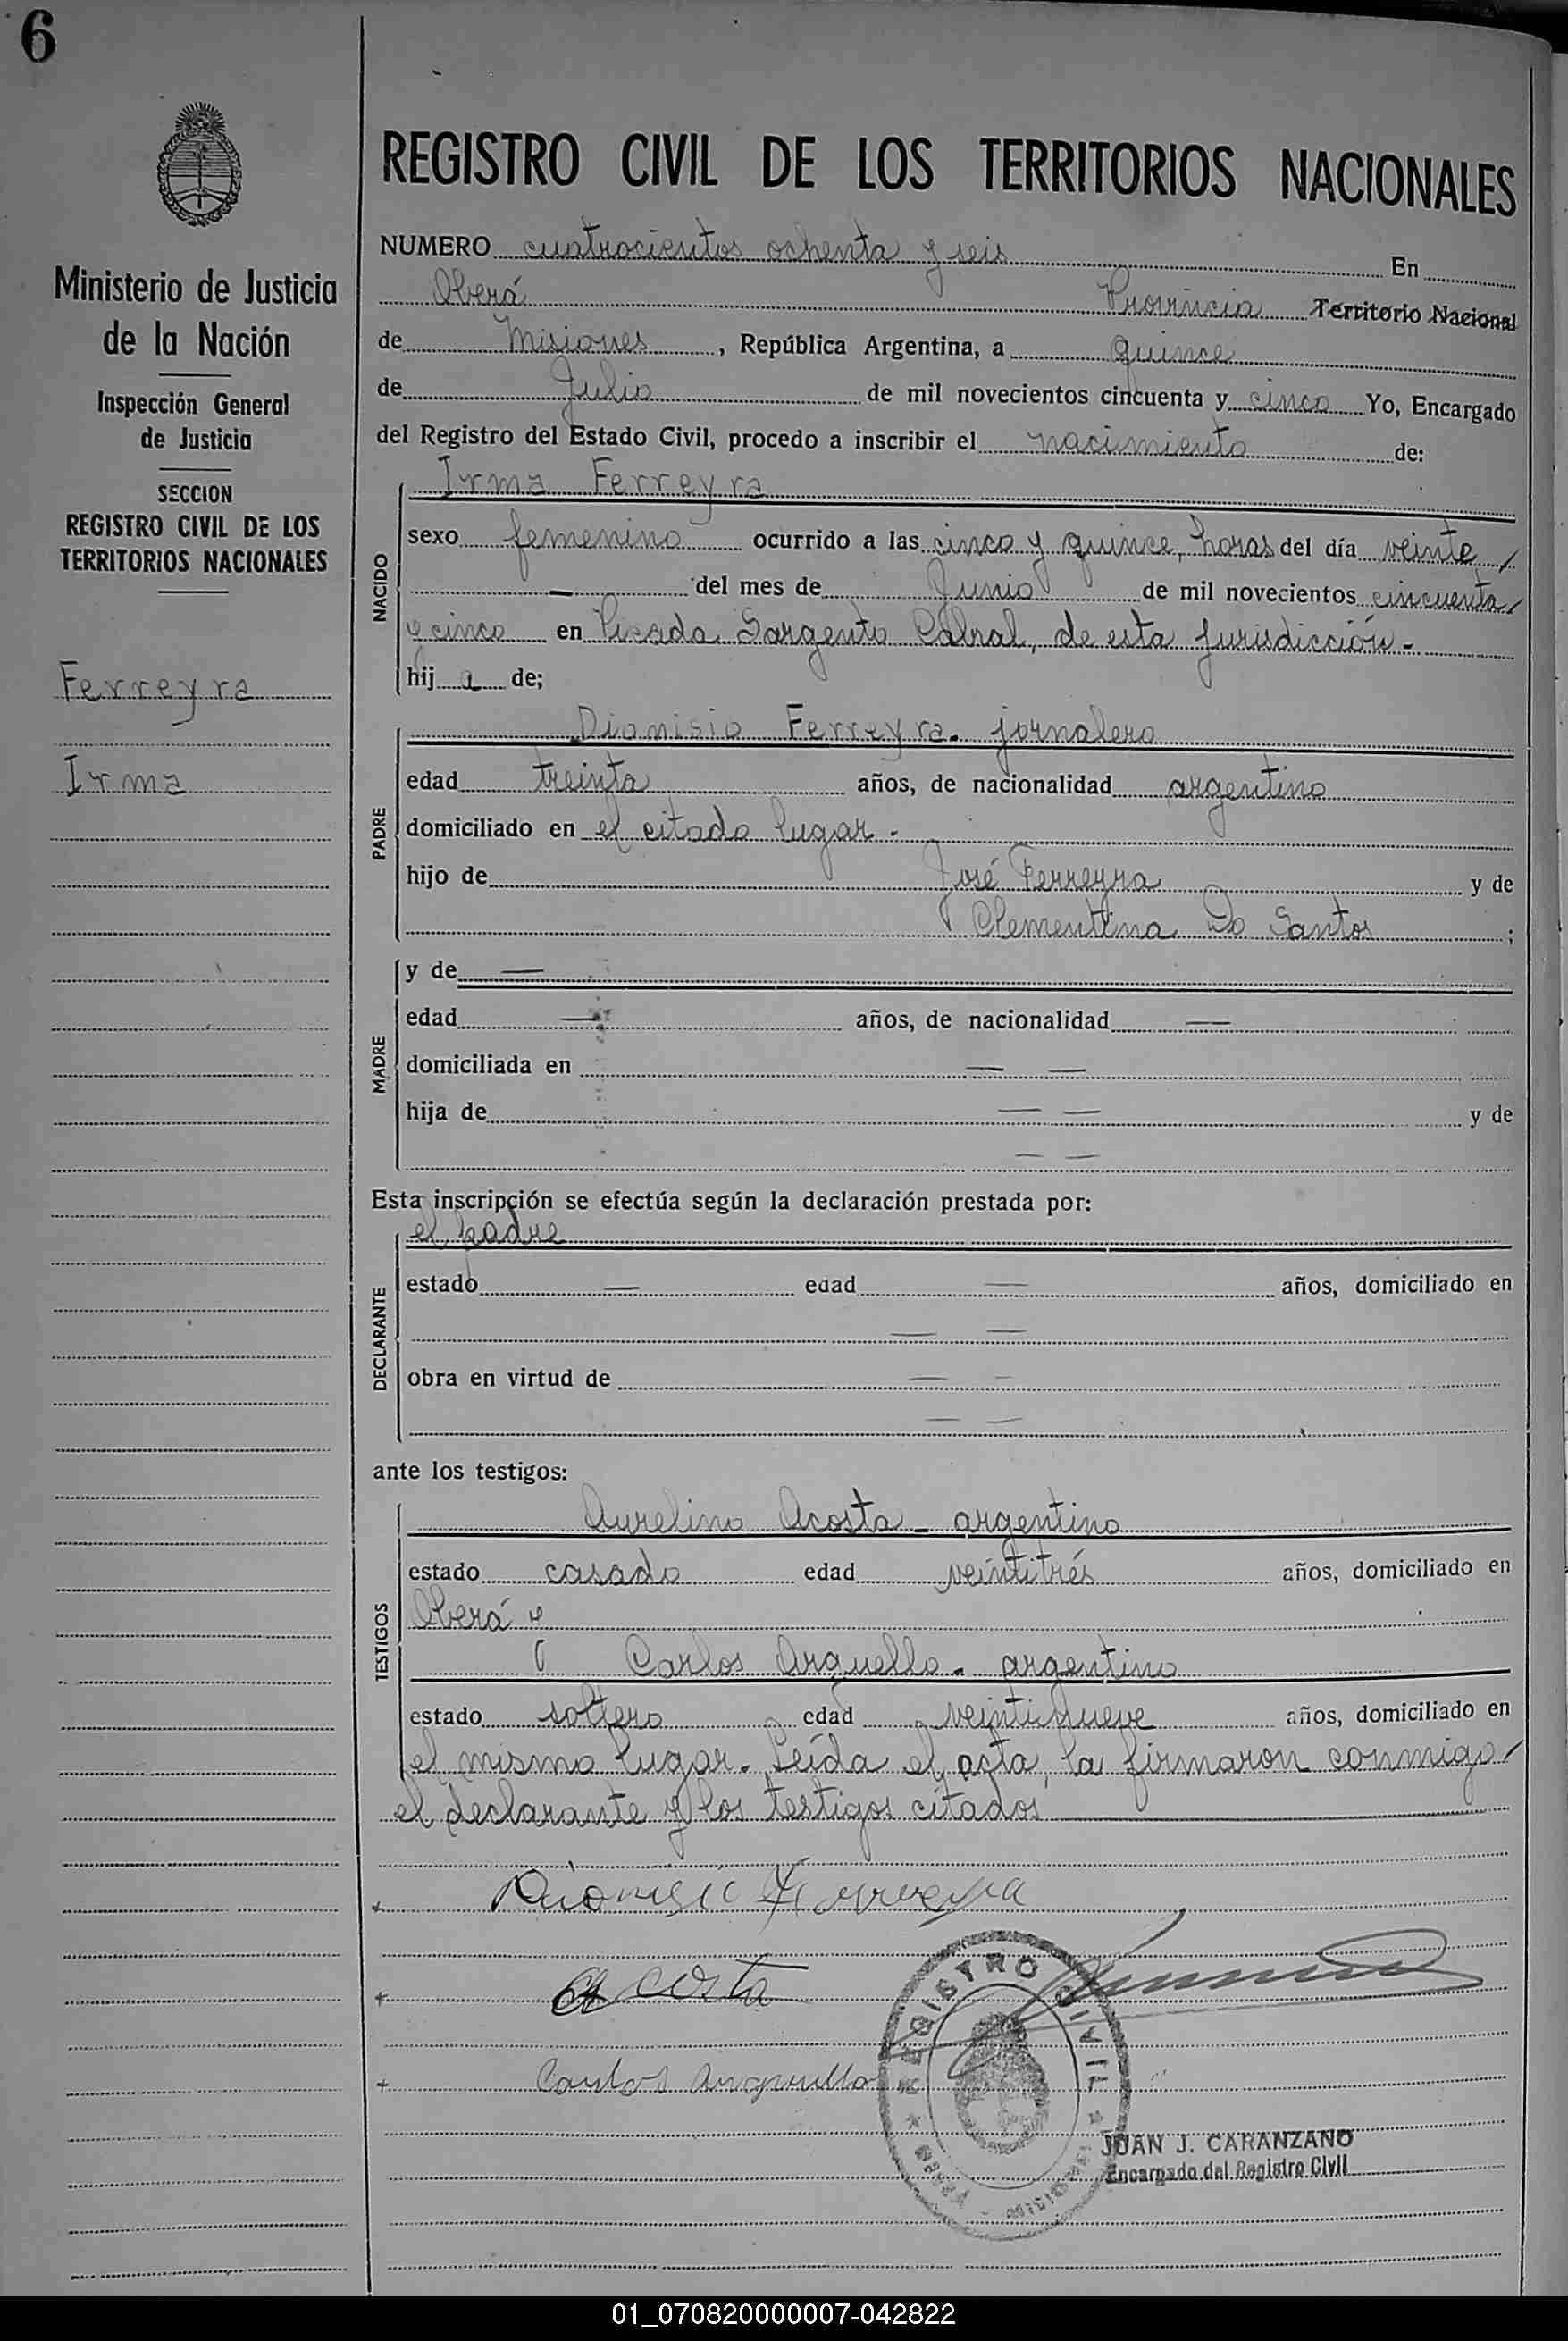 6
REGISTRO CIVIL DE LOS TERRITORIOS NACIONALES
Ministerio de Justicia
de la Nación
Inspección General
de Justicia
SECCION
REGISTRO CIVIL DE LOS
TERRITORIOS NACIONALES
Ferreyra
Irma
NUMERO cuatrocientos ochenta y seis En
Oberá Provincia Territorio Nacional
de Misiones, República Argentina, a quince
de Julio de mil novecientos cincuenta y cinco Yo, Encargado
del Registro del Estado Civil, procedo a inscribir el nacimiento de:
NACIDO
Irma Ferreyra
sexo femenino ocurrido a las cinco y quince, horas del día veinte /
— del mes de Junio de mil novecientos cincuenta /
y cinco en Picada Sargento Cabral, de esta jurisdicción.-
hij a de;
PADRE
Dionisio Ferreyra. jornalero
edad treinta años, de nacionalidad argentino
domiciliado en el citado lugar.-
hijo de José Ferreyra y de
Clementina Do Santos ;
MADRE
y de —
edad — años, de nacionalidad —
domiciliada en — —
hija de — — y de
— —
Esta inscripción se efectúa según la declaración prestada por:
DECLARANTE
el padre
estado — edad — años, domiciliado en
— —
obra en virtud de — —
— —
ante los testigos:
TESTIGOS
Aurelino Acosta - argentino
estado casado edad veintitrés años, domiciliado en
Oberá y
Carlos Arguello. argentino
estado soltero edad veintinueve años, domiciliado en
el mismo lugar. Leída el acta, la firmaron conmigo /
el declarante y los testigos citados
+ Dionisio Ferreyra
+ Acosta
+ Carlos Arguello
REGISTRO CIVIL
JUAN J. CARANZANO
Encargado del Registro Civil
01_070820000007-042822